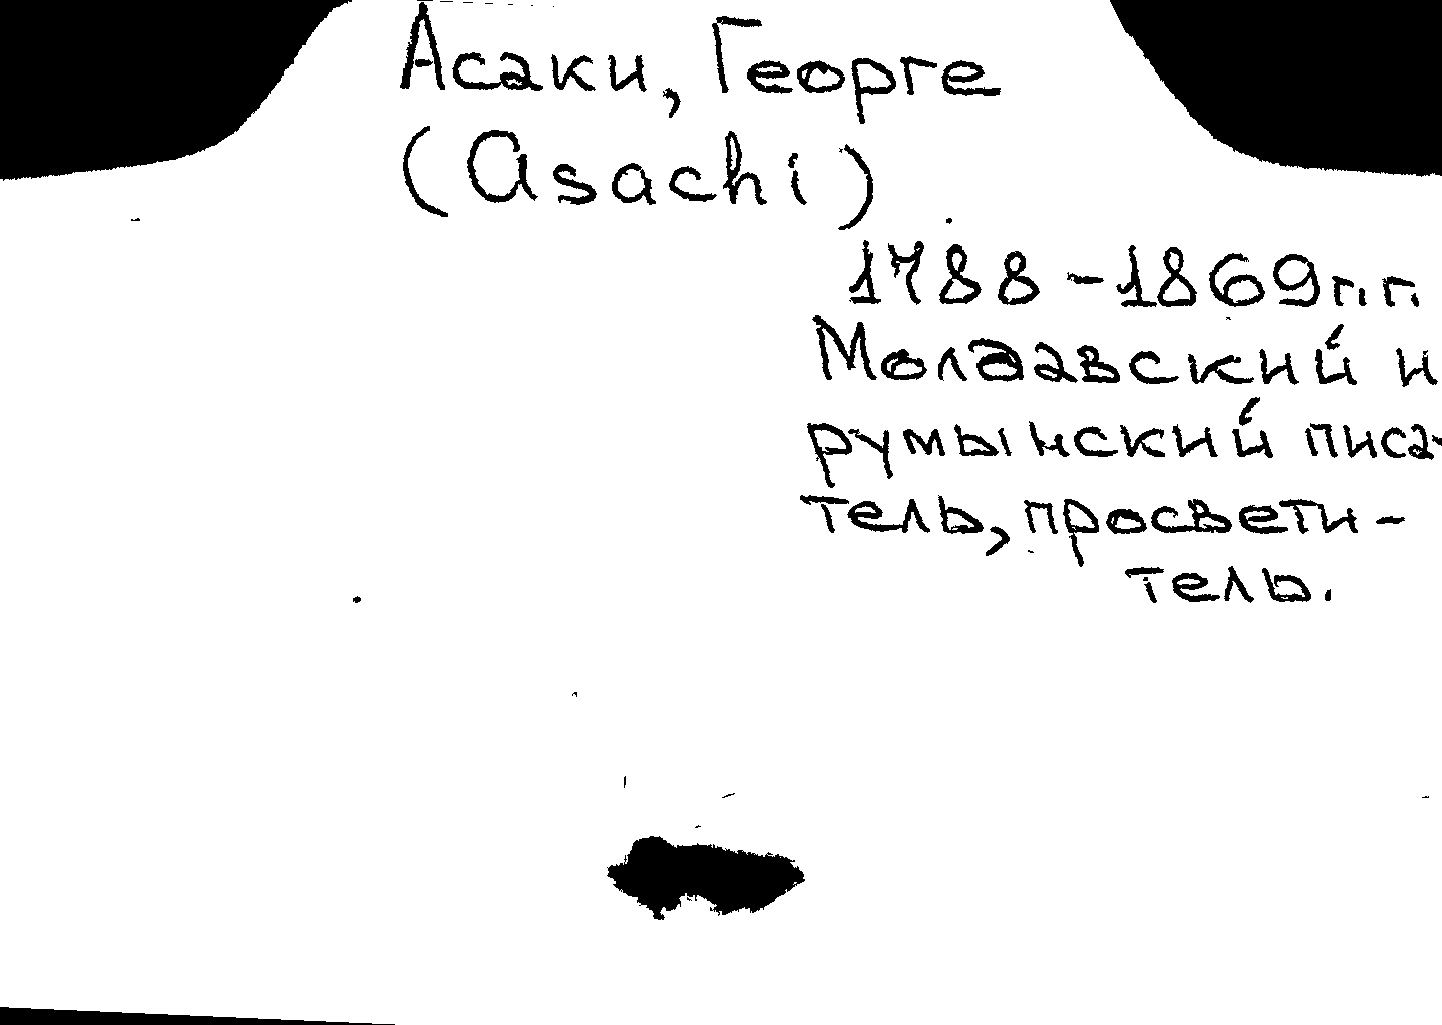 Асаки, Георге
(Asachi)
1788-1869г.г.
Молдавский и
румынский писа-
тель, просвети-
тель.